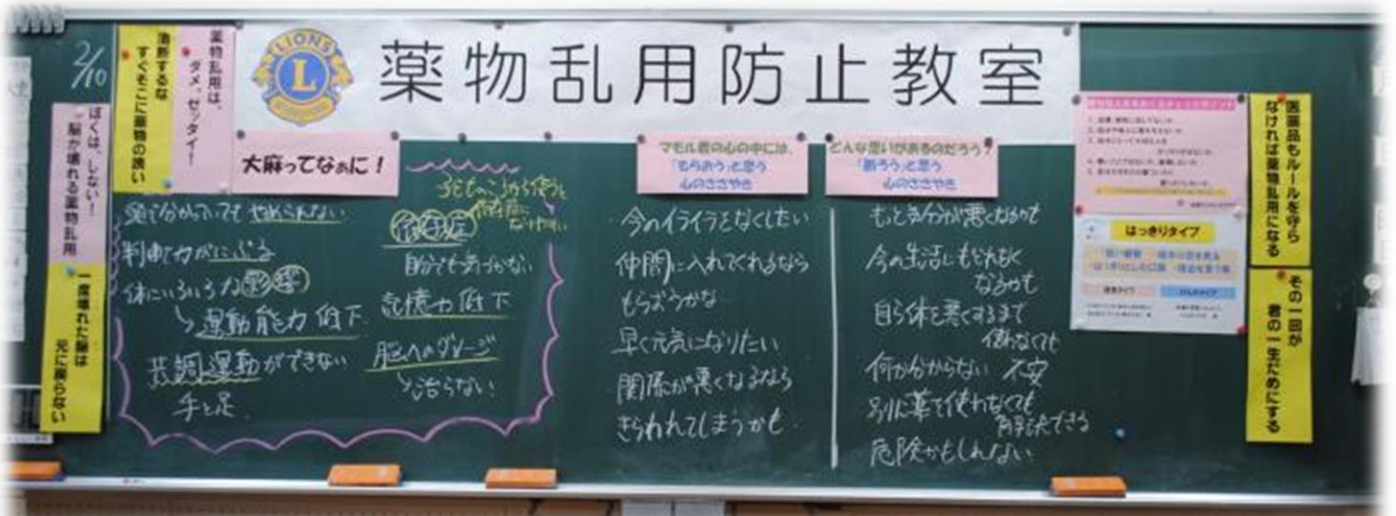 薬物乱用防止教室
LIONS
L
2/10
薬物乱用は、
ダメ。ゼッタイ！
油断するな
すぐそこに薬物の誘い
ぼくは、しない！
脳が壊れる薬物乱用
一度壊れた脳は
元に戻らない
大麻ってなぁに！
頭で分かっていてもやめられない
判断力がにぶる
体にいろいろな影響
運動能力低下
共調運動ができない
手と足
子どものころから使うと
依存症に
なりやすい
依存症
自分でも気づかない
記憶力低下
脳へのダメージ
治らない!
マモル君の心の中には、
「もらおう」と思う
心のささやき
今のイライラをなくしたい
仲間に入れてくれるなら
もらおうかな
早く元気になりたい
関係が悪くなるなら
きらわれてしまうかも
どんな思いがあるのだろう?
「断ろう」と思う
心のささやき
もっと気分が悪くなるかも
今の生活にもどれなく
なるかも
自ら体を悪くするまで
働かなくても
何か分からない 不安
別に薬を使わなくても
解決できる
危険かもしれない
はっきりタイプ
医薬品もルールを守ら
なければ薬物乱用になる
その一回が
君の一生だめにする